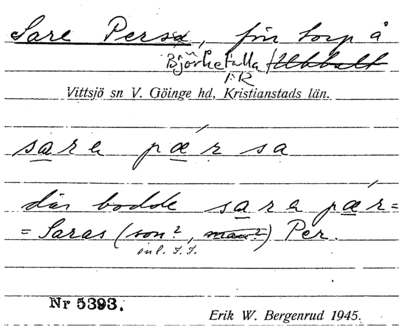 Sare Persa, förr torp å
Björkefalla /Ubbalt
FR
Vittsjö sn V. Göinge hd, Kristianstads län.
sara pær sa
där bodde sara pær=
= Saras (son?, man?) Per.
enl. I. I.
Nr 5393.
Erik W. Bergenrud 1945.